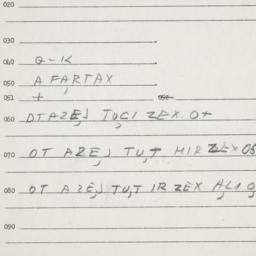 020
030
040 Q-K
050 A FARTAX
051 + 052
060 DTAZEJ TUCI ZEX O+
070 OT AZEJ TUT MIR ZEX OS
080 OT AZEJ TUT IR ZEX ALI O
090